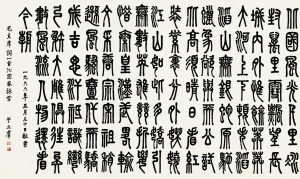 北國風光千里冰
封萬里雪飄望長
城內外惟餘莽莽
大河上下頓失滔
滔山舞銀蛇原馳
蠟象欲與天公試
比高須晴日看紅
裝素裹分外妖嬈
江山如此多嬌引
無數英雄競折腰
惜秦皇漢武略輸
文采唐宗宋祖稍
遜風騷一代天驕
成吉思汗只識彎
弓射大雕俱往矣
數風流人物還看
今朝
毛主席詞一首沁園春詠雪
一九六八年五月二十日敬書